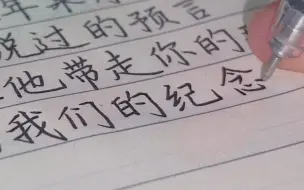 说过的预言
他带走你的
我们的纪念